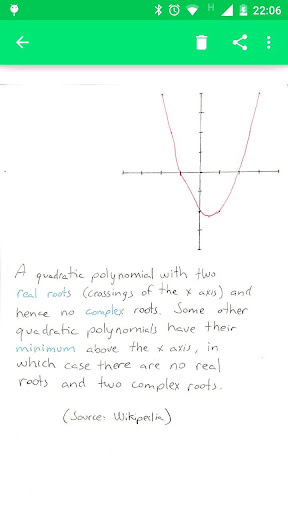 H
22:06
A quadratic polynomial with two
real roots (crossings of the x axis) and
hence no complex roots. Some other
quadratic polynomials have their
minimum above the x axis, in
which case there are no real
roots and two complex roots.
(Source: Wikipedia)